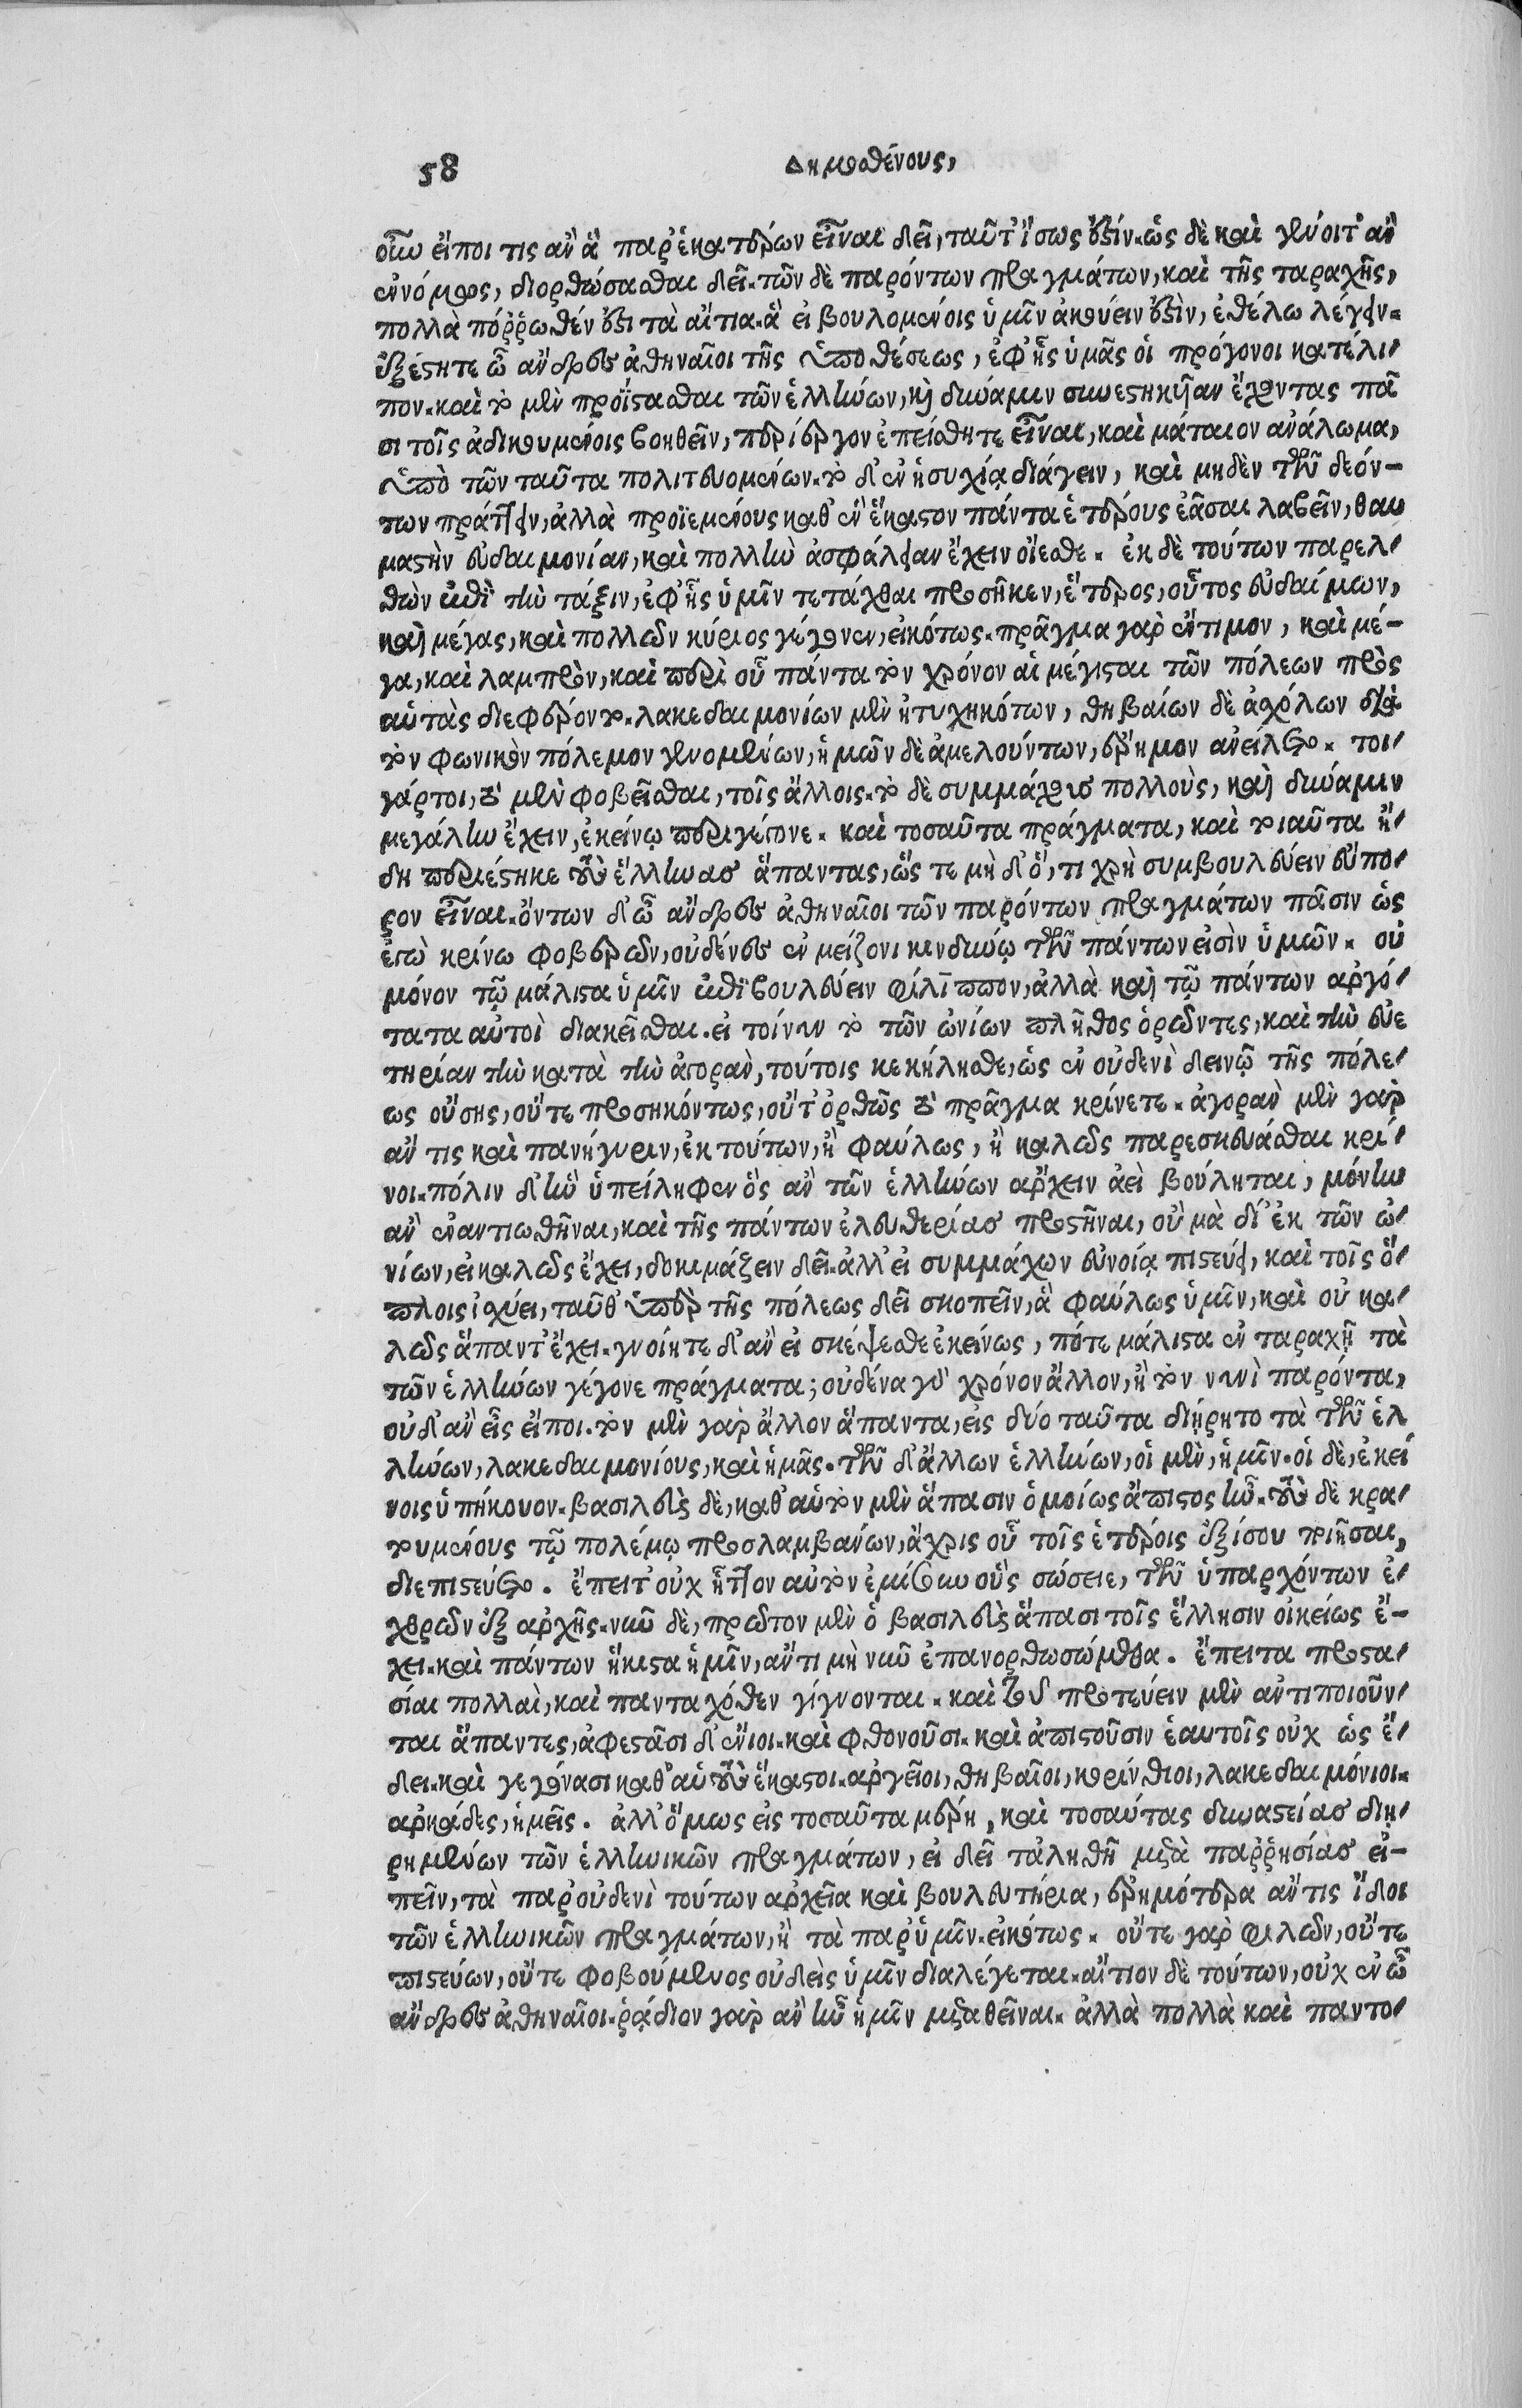 58 Δημοσθένους,
οὕτω εἴποι τις ἂν ἃ παρ' ἑκατέρων εἶναι δεῖ, ταῦτ' ἴσως ἐστίν. ὡς δὲ καὶ γένοιτ' ἂν
ἐννόμως, διορθώσασθαι δεῖ. τῶν δὲ παρόντων πραγμάτων, καὶ τῆς ταραχῆς,
πολλὰ πόῤῥωθέν ἐστι τὰ αἴτια. ἃ εἰ βουλομένοις ὑμῖν ἀκούειν ἐστὶν, ἐθέλω λέγειν.
ἐξέστητε ὦ ἄνδρες ἀθηναῖοι τῆς ὑποθέσεως, ἐφ' ἧς ὑμᾶς οἱ πρόγονοι κατέλι
πον. καὶ τὸ μὲν προΐστασθαι τῶν ἑλλήνων, καὶ δύναμιν συνεστηκῆαν ἔχοντας πᾶ
σι τοῖς ἀδικουμένοις βοηθεῖν, περίεργον ἐπείσθητε εἶναι, καὶ μάταιον ἀνάλωμα,
ὑπὸ τῶν ταῦτα πολιτευομένων. τὸ δ' ἐν ἡσυχίᾳ διάγειν, καὶ μηδὲν τῶν δεόν-
των πράττειν, ἀλλὰ προϊεμένους καθ' ἓν ἕκαστον πάντα ἑτέρους ἐᾶσαι λαβεῖν, θαυ
μαστὴν εὐδαιμονίαν, καὶ πολλὴν ἀσφάλειαν ἔχειν οἴεσθε. ἐκ δὲ τούτων παρελ
θὼν ἐπὶ τὴν τάξιν, ἐφ' ἧς ὑμῖν τετάχθαι προσῆκεν, ἕτερος, οὗτος εὐδαίμων,
καὶ μέγας, καὶ πολλῶν κύριος γέγονεν, εἰκότως. πρᾶγμα γὰρ ἔντιμον, καὶ μέ-
γα, καὶ λαμπρὸν, καὶ περὶ οὗ πάντα τὸν χρόνον αἱ μέγισται τῶν πόλεων πρὸς
αὑτὰς διεφέροντο. λακεδαιμονίων μὲν ἠτυχηκότων, θηβαίων δὲ ἀσχόλων διὰ
τὸν φωνικὸν πόλεμον γενομένων, ἡμῶν δὲ ἀμελούντων, ἔρημον ἀνείλετο. τοι
γάρτοι, τὸ μὲν φοβεῖσθαι, τοῖς ἄλλοις. τὸ δὲ συμμάχους πολλοὺς, καὶ δύναμιν
μεγάλην ἔχειν, ἐκείνῳ περιγέγονε. καὶ τοσαῦτα πράγματα, καὶ τοιαῦτα ἤ
δη περιέστηκε τοὺς ἕλληνας ἅπαντας, ὥς τε μὴ δ' ὅ, τι χρὴ συμβουλεύειν εὔπο
ρον εἶναι. ὄντων δ' ὦ ἄνδρες ἀθηναῖοι τῶν παρόντων πραγμάτων πᾶσιν ὡς
ἐγὼ κρίνω φοβερῶν, οὐδένες ἐν μείζονι κινδύνῳ τῶν πάντων εἰσὶν ὑμῶν. οὐ
μόνον τῷ μάλιστα ὑμῖν ἐπιβουλεύειν φίλιππον, ἀλλὰ καὶ τῷ πάντων ἀργό
τατα αὐτοὶ διακεῖσθαι. εἰ τοίνυν τὸ τῶν ὠνίων πλῆθος ὁρῶντες, καὶ τὴν εὐε
τηρίαν τὴν κατὰ τὴν ἀγορὰν, τούτοις κεκήλησθε, ὡς ἐν οὐδενὶ δεινῷ τῆς πόλε
ως οὔσης, οὔτε προσηκόντως, οὔτ' ὀρθῶς τὸ πρᾶγμα κρίνετε. ἀγορὰν μὲν γὰρ
ἄν τις καὶ πανήγυριν, ἐκ τούτων, ἢ φαύλως, ἢ καλῶς παρεσκευάσθαι κρί
νοι. πόλιν δ' ἣν ὑπείληφεν ὃς ἂν τῶν ἑλλήνων ἄρχειν ἀεὶ βούληται, μόνην
ἂν ἐναντιωθῆναι, καὶ τῆς πάντων ἐλευθερίας προστῆναι, οὐ μὰ δί' ἐκ τῶν ὠ
νίων, εἰ καλῶς ἔχει, δοκιμάζειν δεῖ. ἀλλ' εἰ συμμάχων εὐνοίᾳ πιστεύει, καὶ τοῖς ὅ
πλοις ἰσχύει, ταῦθ' ὑπὲρ τῆς πόλεως δεῖ σκοπεῖν, ἃ φαύλως ὑμῖν, καὶ οὐ κα
λῶς ἅπαντ' ἔχει. γνοίητε δ' ἂν εἰ σκέψεσθε ἐκείνως, πότε μάλιστα ἐν ταραχῇ τὰ
τῶν ἑλλήνων γέγονε πράγματα; οὐδένα γὰρ χρόνον ἄλλον, ἢ τὸν νυνὶ παρόντα,
οὐδ' ἂν εἷς εἴποι. τὸν μὲν γὰρ ἄλλον ἅπαντα, εἰς δύο ταῦτα διῄρητο τὰ τῶν ἑλ
λήνων, λακεδαιμονίους, καὶ ἡμᾶς. τῶν δ' ἄλλων ἑλλήνων, οἱ μὲν, ἡμῖν. οἱ δὲ, ἐκεί
νοις ὑπήκουον. βασιλεὺς δὲ, καθ' αὑτὸν μὲν ἅπασιν ὁμοίως ἄπιστος ἦν. τοὺς δὲ κρα
τουμένους τῷ πολέμῳ προσλαμβάνων, ἄχρις οὗ τοῖς ἑτέροις ἐξίσου ποιῆσαι,
διεπιστεύετο. ἔπειτ' οὐχ ἧττον αὐτὸν ἐμίσουν οὓς σώσειε, τῶν ὑπαρχόντων ἐ
χθρῶν ἐξ ἀρχῆς. νῦν δὲ, πρῶτον μὲν ὁ βασιλεὺς ἅπασι τοῖς ἕλλησιν οἰκείως ἔ-
χει. καὶ πάντων ἥκιστα ἡμῖν, ἄν τι μὴ νῦν ἐπανορθωσώμεθα. ἔπειτα προστα
σίαι πολλαὶ, καὶ πανταχόθεν γίγνονται. καὶ τοῦ πρωτεύειν μὲν ἀντιποιοῦν
ται ἅπαντες, ἀφεστᾶσι δ' ἔνιοι. καὶ φθονοῦσι. καὶ ἀπιστοῦσιν ἑαυτοῖς οὐχ ὡς ἔ
δει. καὶ γεγόνασι καθ' αὑτοὺς ἕκαστοι. ἀργεῖοι, θηβαῖοι, κορίνθιοι, λακεδαιμόνιοι.
ἀρκάδες, ἡμεῖς. ἀλλ' ὅμως εἰς τοσαῦτα μέρη, καὶ τοσαύτας δυναστείας διῃ
ρημένων τῶν ἑλληνικῶν πραγμάτων, εἰ δεῖ τἀληθῆ μετὰ παῤῥησίας εἰ-
πεῖν, τὰ παρ' οὐδενὶ τούτων ἀρχεῖα καὶ βουλευτήρια, ἐρημότερα ἄν τις ἴδοι
τῶν ἑλληνικῶν πραγμάτων, ἢ τὰ παρ' ὑμῖν. εἰκότως. οὔτε γὰρ φιλῶν, οὔτε
πιστεύων, οὔτε φοβούμενος οὐδεὶς ὑμῖν διαλέγεται. αἴτιον δὲ τούτων, οὐχ ἓν ὦ
ἄνδρες ἀθηναῖοι. ῥᾴδιον γὰρ ἂν ἦν ἡμῖν μεταθεῖναι. ἀλλὰ πολλὰ καὶ παντο